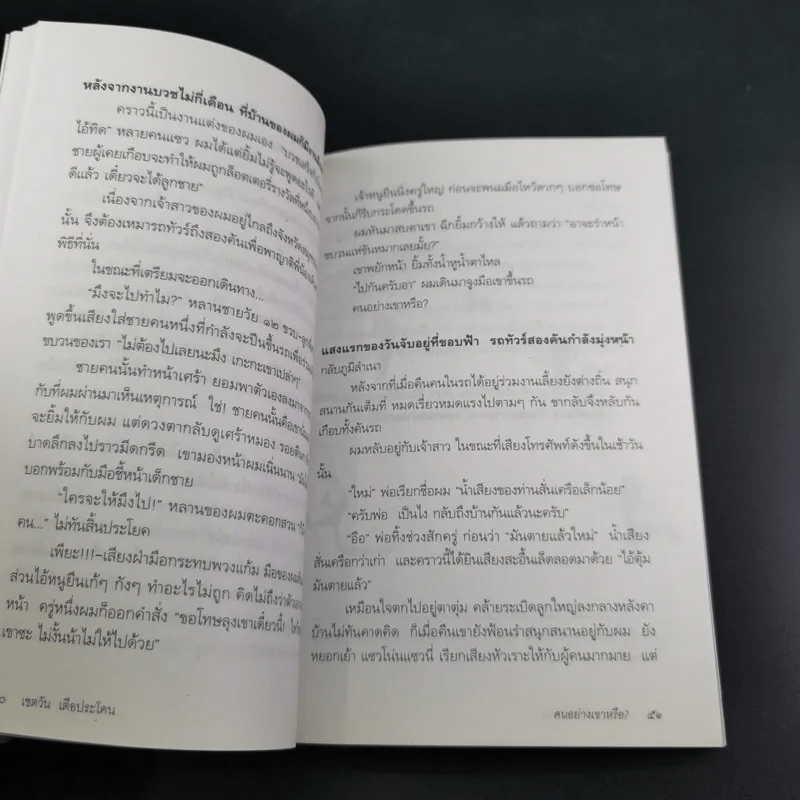 หลังจากงานบวชไม่กี่เดือน ที่บ้านของผมก็มีงาน
คราวนี้เป็นงานแต่งของผมเอง "บวชเสร็จ
ไอ้ทิด" หลายคนแซว ผมได้แต่ยิ้มไม่รู้จะพูดอะไร
ชายผู้เคยเกือบจะทำให้ผมถูกล็อตเตอรี่รางวัลที่หนึ่ง
ดีแล้ว เดี๋ยวจะได้ลูกชาย"
เนื่องจากเจ้าสาวของผมอยู่ไกลถึงจังหวัด
นั้น จึงต้องเหมารถทัวร์ถึงสองคันเพื่อพาญาติพี่น้อง
พิธีที่นั่น
ในขณะที่เตรียมจะออกเดินทาง...
"มึงจะไปทำไม?" หลานชายวัย ๑๒ ขวบ-ลูก
พูดขึ้นเสียงใส่ชายคนหนึ่งที่กำลังจะปีนขึ้นรถเพื่อ
ขบวนของเรา "ไม่ต้องไปเลยนะมึง เกะกะเขาเปล่าๆ"
ชายคนนั้นทำหน้าเศร้า ยอมพาตัวเองลงมา
กับที่ผมผ่านมาเห็นเหตุการณ์ ใช่! ชายคนนั้นคือเขา
จะยิ้มให้กับผม แต่ดวงตากลับดูเศร้าหมอง รอย
บาดลึกลงไปราวมีดกรีด เขามองหน้าผมเนิ่นนาน
บอกพร้อมกับมือชี้หน้าเด็กชาย
"ใครจะให้มึงไป!" หลานของผมตะคอกสวน
คน..." ไม่ทันสิ้นประโยค
เพียะ!!!-เสียงฝ่ามือกระทบพวงแก้ม มือของผม
ส่วนไอ้หนูยืนเก้ๆ กังๆ ทำอะไรไม่ถูก คิดไม่ถึงว่า
หน้า ครู่หนึ่งผมก็ออกคำสั่ง "ขอโทษลุงเขาเดี๋ยวนี้!
เขาซะ ไม่งั้นน้าไม่ให้ไปด้วย"
๐ เขตวัน เตือประโคน
เจ้าหนูยืนนิ่งครู่ใหญ่ ก่อนจะพนมมือไหว้ลวกๆ บอกขอโทษ
จากนั้นก็รีบกระโดดขึ้นรถ
ผมหันมาสบตาเขา ฉีกยิ้มกว้างให้ แล้วถามว่า "อาจะรำหน้า
ขบวนแห่ขันหมากเลยมั้ย?"
เขาพยักหน้า ยิ้มทั้งน้ำหูน้ำตาไหล
"ไปกันครับอา" ผมเดินมาจูงมือเขาขึ้นรถ
คนอย่างเขาหรือ?
แสงแรกของวันจับอยู่ที่ขอบฟ้า รถทัวร์สองคันกำลังมุ่งหน้า
กลับภูมิลำเนา
หลังจากที่เมื่อคืนคนในรถได้อยู่ร่วมงานเลี้ยงยังต่างถิ่น สนุก
สนานกันเต็มที่ หมดเรี่ยวหมดแรงไปตามๆ กัน ขากลับจึงหลับกัน
เกือบทั้งคันรถ
ผมหลับอยู่กับเจ้าสาว ในขณะที่เสียงโทรศัพท์ดังขึ้นในเช้าวัน
นั้น
"ใหม่" พ่อเรียกชื่อผม "น้ำเสียงของท่านสั่นเครือเล็กน้อย"
"ครับพ่อ เป็นไง กลับถึงบ้านกันแล้วนะครับ"
"อือ" พ่อทิ้งช่วงสักครู่ ก่อนว่า "มันตายแล้วใหม่" น้ำเสียง
สั่นเครือกว่าเก่า และคราวนี้ได้ยินเสียงสะอื้นเล็ดลอดมาด้วย "ไอ้ตุ้ม
มันตายแล้ว"
เหมือนใจตกไปอยู่ตาตุ่ม คล้ายระเบิดลูกใหญ่ลงกลางหลังคา
บ้านไม่ทันคาดคิด ก็เมื่อคืนเขายังฟ้อนรำสนุกสนานอยู่กับผม ยัง
หยอกเย้า แซวโน่นแซวนี่ เรียกเสียงหัวเราะให้กับผู้คนมากมาย แต่
คนอย่างเขาหรือ? ๕๑